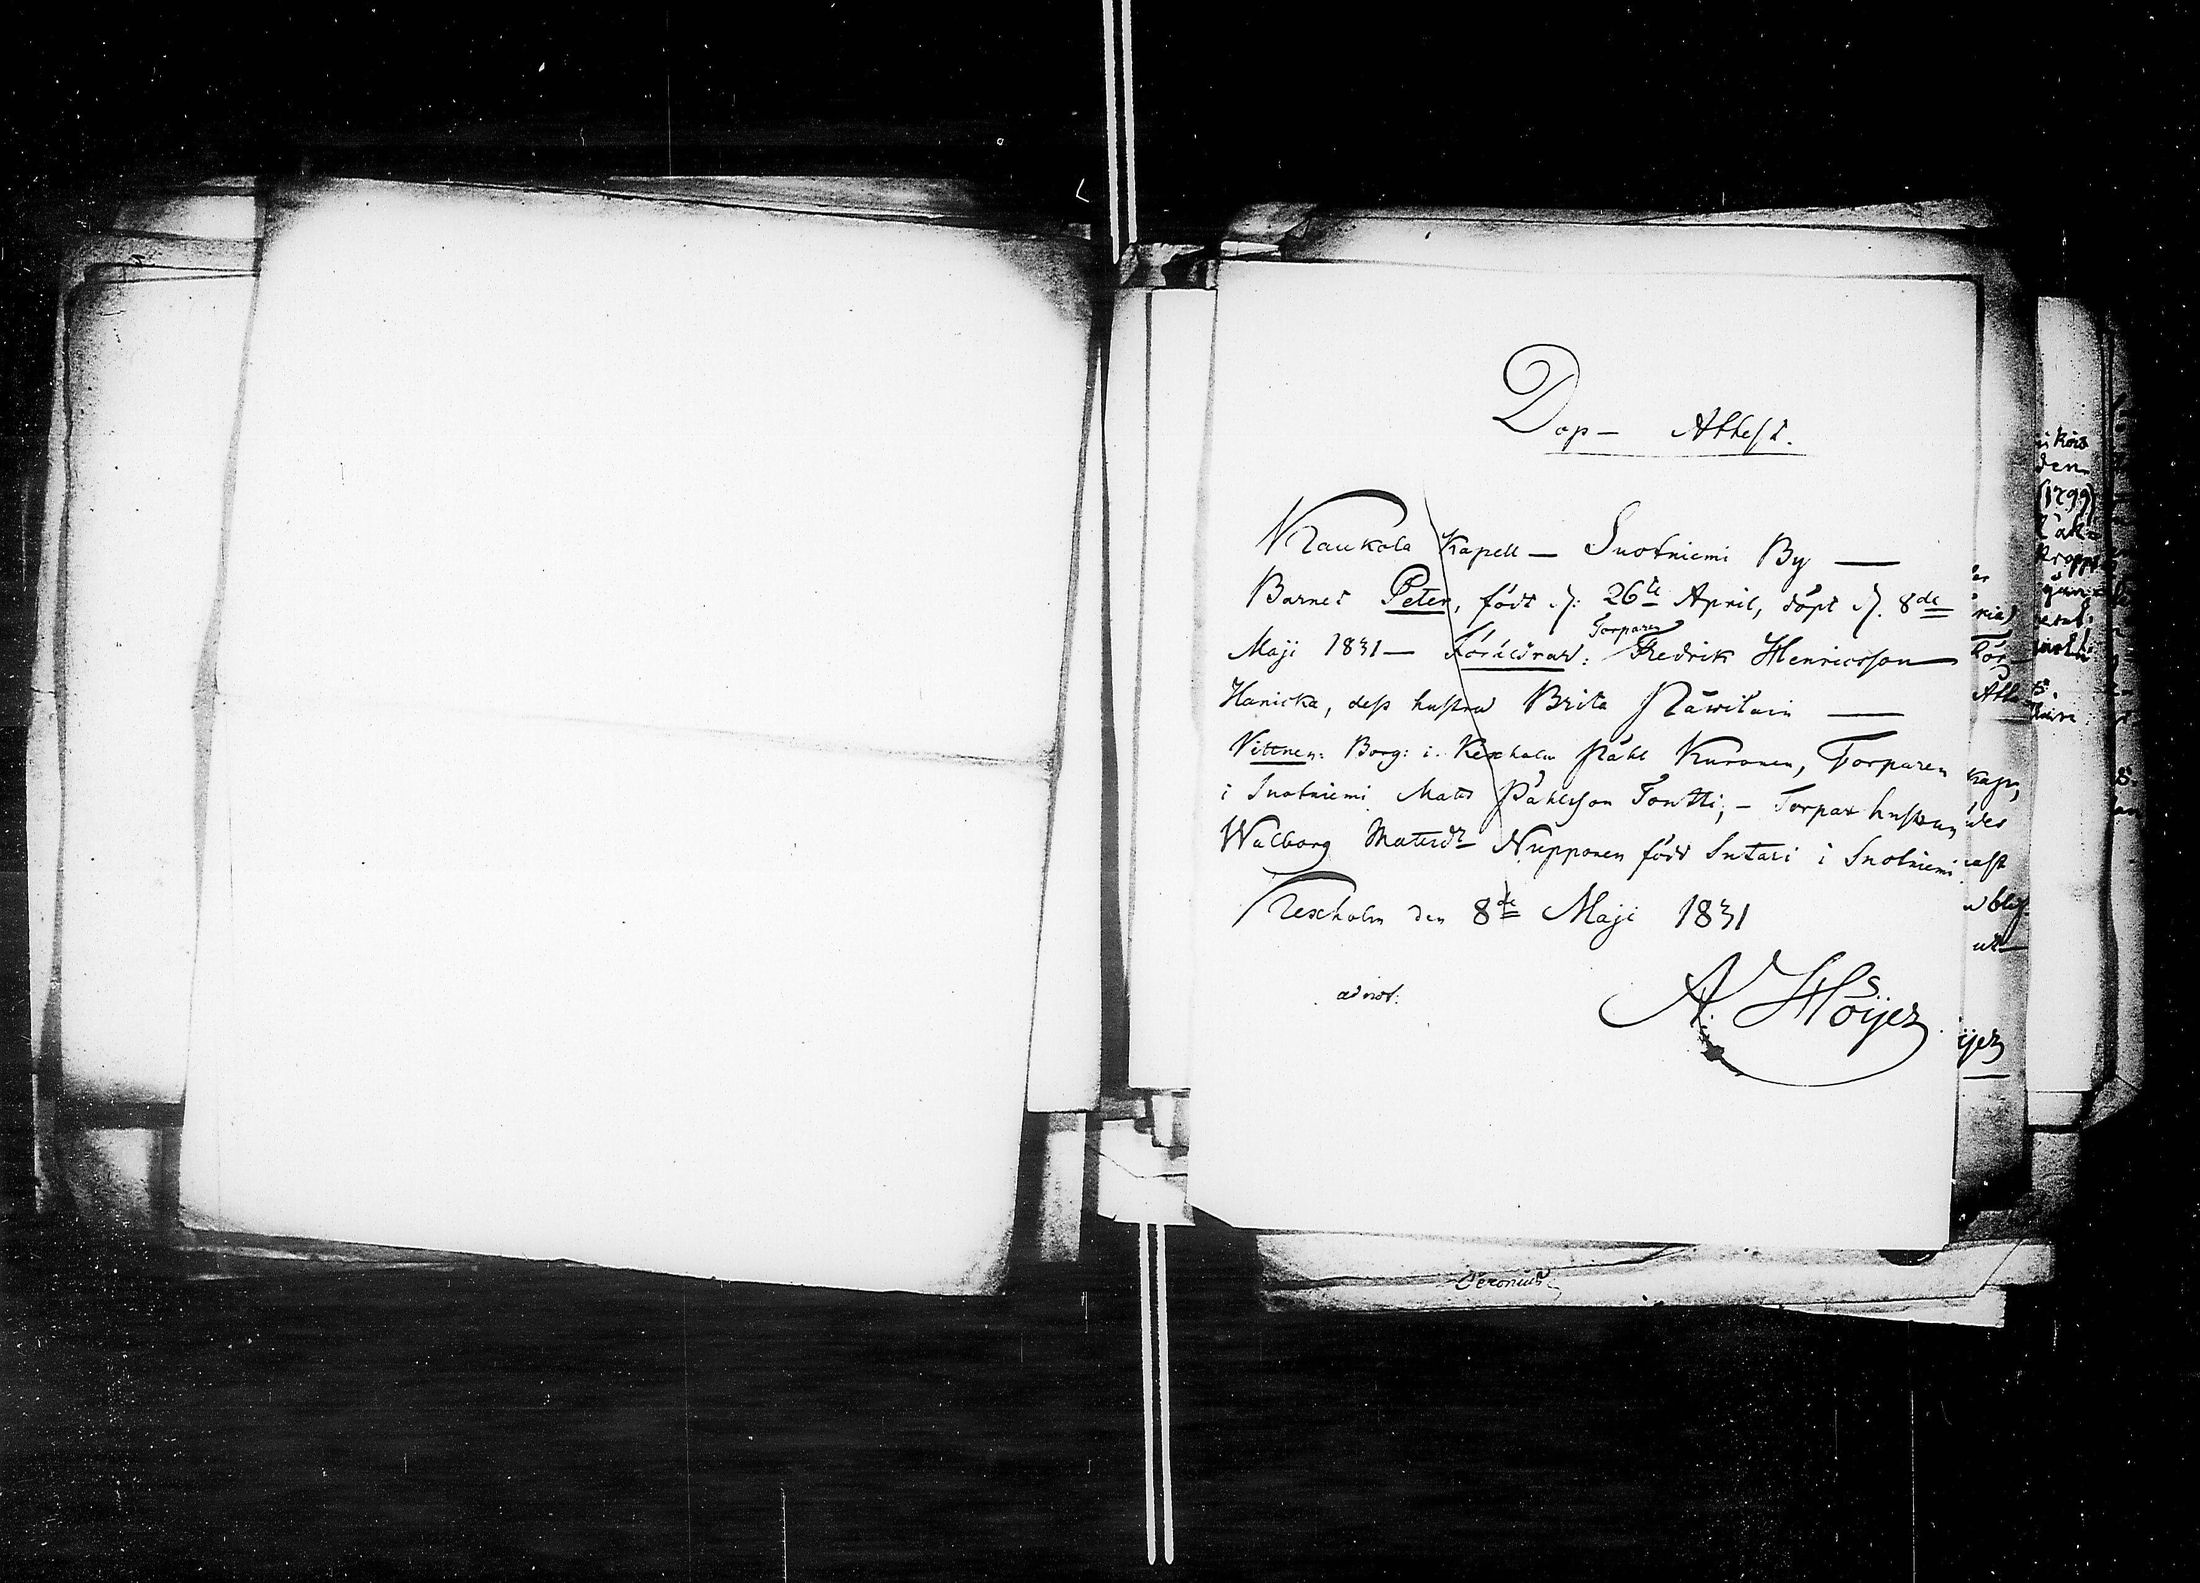 Dop- Attest.
Kaukola Kapell — Suotniemi By —
Barnet Peter, födt d: 26te April, döpt d. 8de
Torparen
Maji 1831 — Föräldrar: Fredrik Henricsson
Hanicka, dess hustru Brita Räwilain —
Vittnen: Borg: i Kexholm Påhl Kuronen, Torparen
i Suotniemi Mats Påhlsson Tontti; — Torpar hustrun
Walborg Matsdr Nupponen född Sutari i Suotniemi.
Kexholm den 8de Maji 1831
adnot: A. Höijer
(1799)